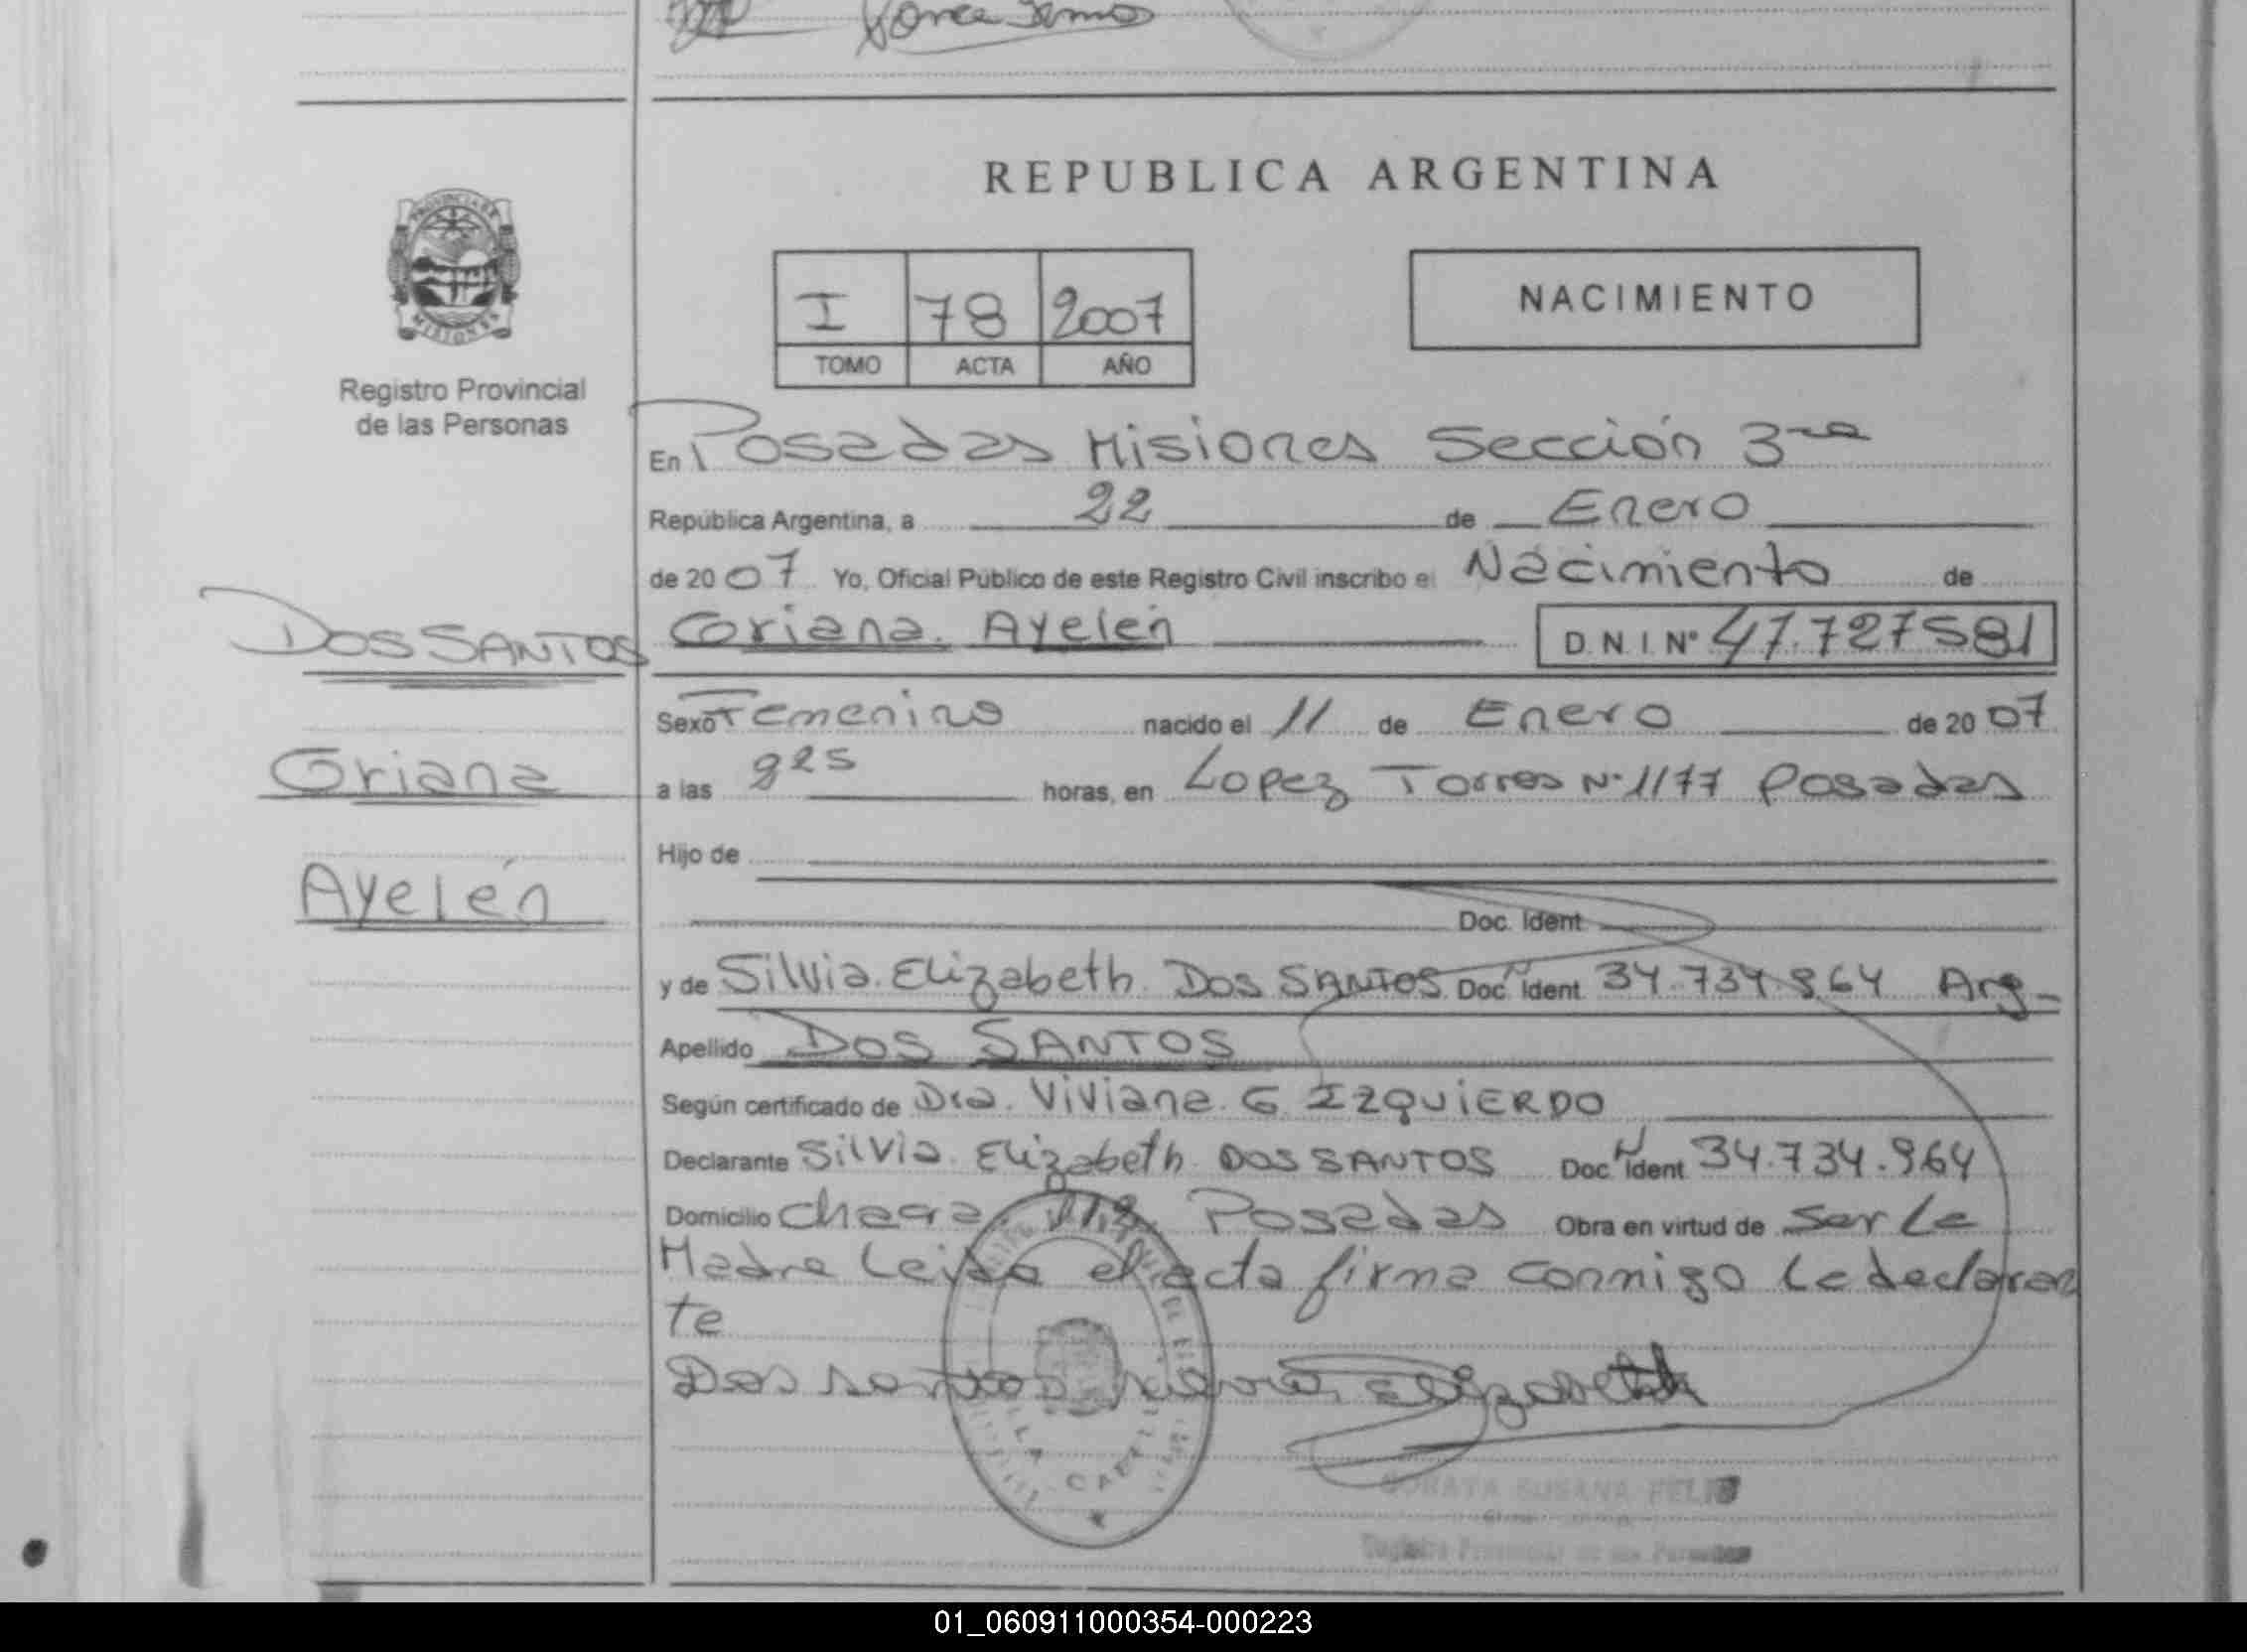 REPUBLICA ARGENTINA
PROVINCIA DE
MISIONES
Registro Provincial
de las Personas
I 78 2007
TOMO ACTA AÑO
NACIMIENTO
En Posadas Misiones Sección 3ra
República Argentina, a 22 de Enero
de 2007 Yo, Oficial Público de este Registro Civil inscribo el Nacimiento de
DOS SANTOS
Oriana Ayelén
D.N.I. Nº 47.727581
Sexo Femenino nacido el 11 de Enero de 2007
Oriana
a las 925 horas, en Lopez Torres Nº 1177 Posadas
Hijo de
Ayelén
Doc. Ident
y de Silvia Elizabeth DOS SANTOS Doc. Ident 34.734.964 Arg-
Apellido DOS SANTOS
Según certificado de Dra. Viviana G IZQUIERDO
Declarante Silvia Elizabeth DOS SANTOS Doc. Ident 34.734.964
Domicilio Chacra Posadas Obra en virtud de ser la
Madre Leida el acta firma conmigo la declaran
te
Dos santos Silvia Elizabeth
SUSANA
01_060911000354-000223